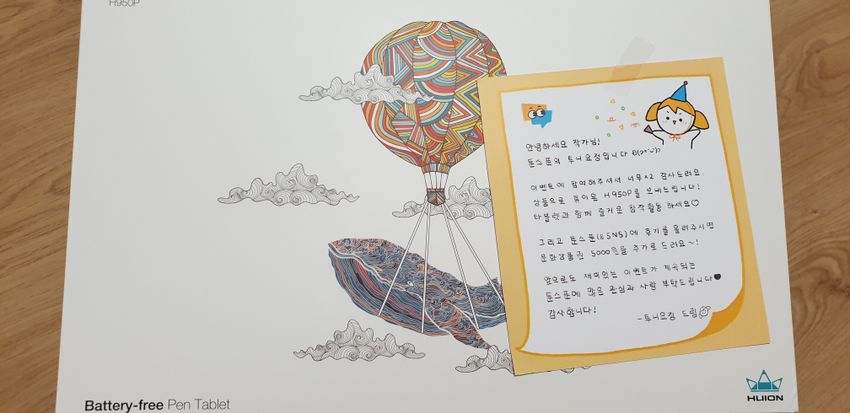 H950P
안녕하세요 작가님!
툰스푼의 투니요정입니다
이벤트에 참여해주셔서 너무x2 감사드려요.
상품으로 휴이온 H950P를 보내드립니다!
타블렛과 함께 즐거운 창작활동 하세요♡
그리고 툰스푼(or SNS)에 후기를 올려주시면
문화상품권 5000원을 추가로 드려요~!
앞으로도 재미있는 이벤트가 계속되는
툰스푼에 많은 관심과 사랑 부탁드립니다♥
감사합니다!
-투니요정 드림
HUION
Battery-free Pen Tablet